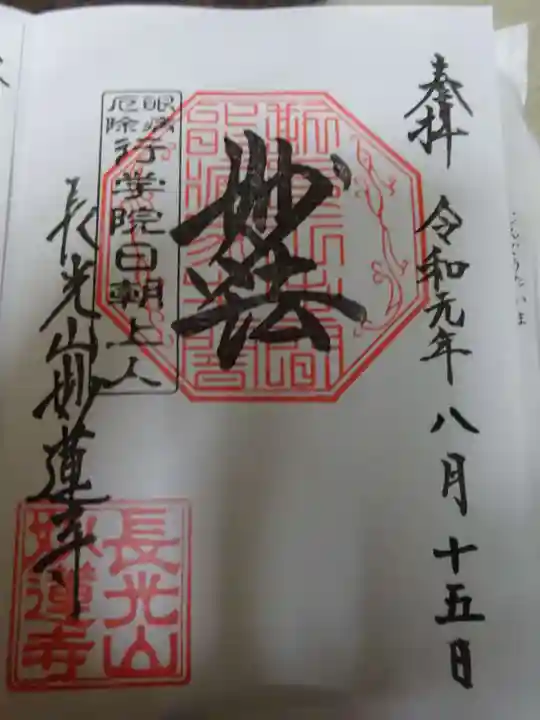 奉拝
令和元年八月十五日
妙法
眼病
厄除
行学院日朝上人
長光山妙蓮寺
長光山
妙蓮寺